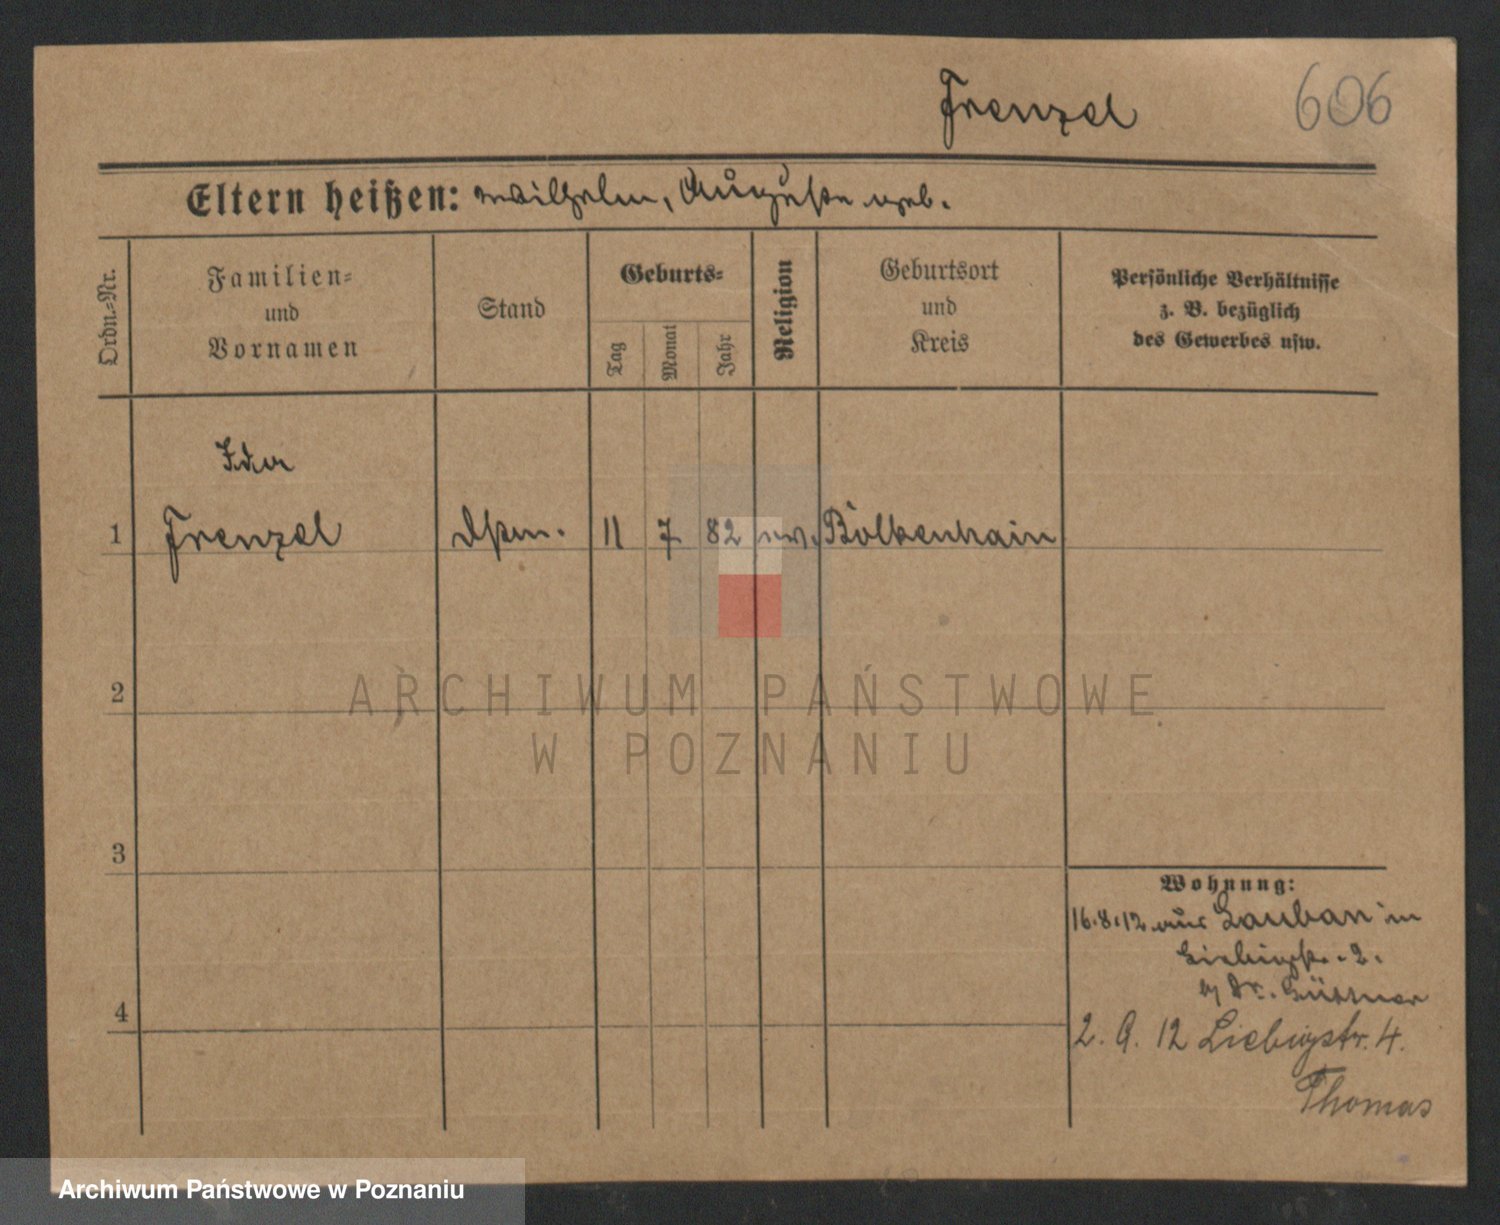 Frenzel 606
Eltern heißen: Wilhelm, Auguste geb.
Ordn.=Nr.
Familien=
und
Vornamen
Stand
Geburts=
Tag
Monat
Jahr
Religion
Geburtsort
und
Kreis
Persönliche Verhältnisse
z. B. bezüglich
des Gewerbes usw.
Ida
1 Frenzel Dstm. 11 7 82 ev. Bolkenhain
2
ARCHIWUM PAŃSTWOWE
W POZNANIU
3
Wohnung:
16.8.12 aus Lauban in
Liebigstr. 2.
b/ Dr. Büttner
4
2. 9. 12 Liebigstr. 4.
Thomas
Archiwum Państwowe w Poznaniu